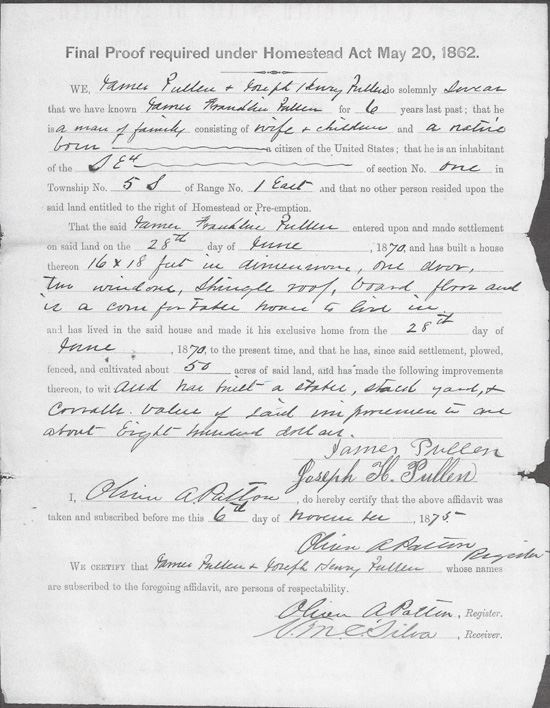 Final Proof required under Homestead Act May 20, 1862.
WE, James Pullen & Joseph Henry Pullen do solemnly swear
that we have known James Franklin Pullen for 6 years last past; that he
is a man of family consisting of wife & children and a native
born a citizen of the United States; that he is an inhabitant
of the S E 4 of section No. one in
Township No. 5 S of Range No. 1 East and that no other person resided upon the
said land entitled to the right of Homestead or Pre-emption.
That the said James Franklin Pullen entered upon and made settlement
on said land on the 28th day of June, 1870, and has built a house
thereon 16 x 18 feet in dimensions, one door,
two windows, shingle roof, board floor and
is a comfortable house to live in
and has lived in the said house and made it his exclusive home from the 28th day of
June, 1870, to the present time, and that he has, since said settlement, plowed,
fenced, and cultivated about 50 acres of said land, and has made the following improvements
thereon, to wit and has built a stable, yard, &
Corralls. Value of said improvements are
about Eight hundred dollars.
James Pullen
Joseph H. Pullen
I, Oliver A Patton, do hereby certify that the above affidavit was
taken and subscribed before me this 6th day of November, 1875
Oliver A Patton Register
WE CERTIFY that James Pullen & Joseph Henry Pullen whose names
are subscribed to the foregoing affidavit, are persons of respectability.
Oliver A Patton, Register.
Silva, Receiver.